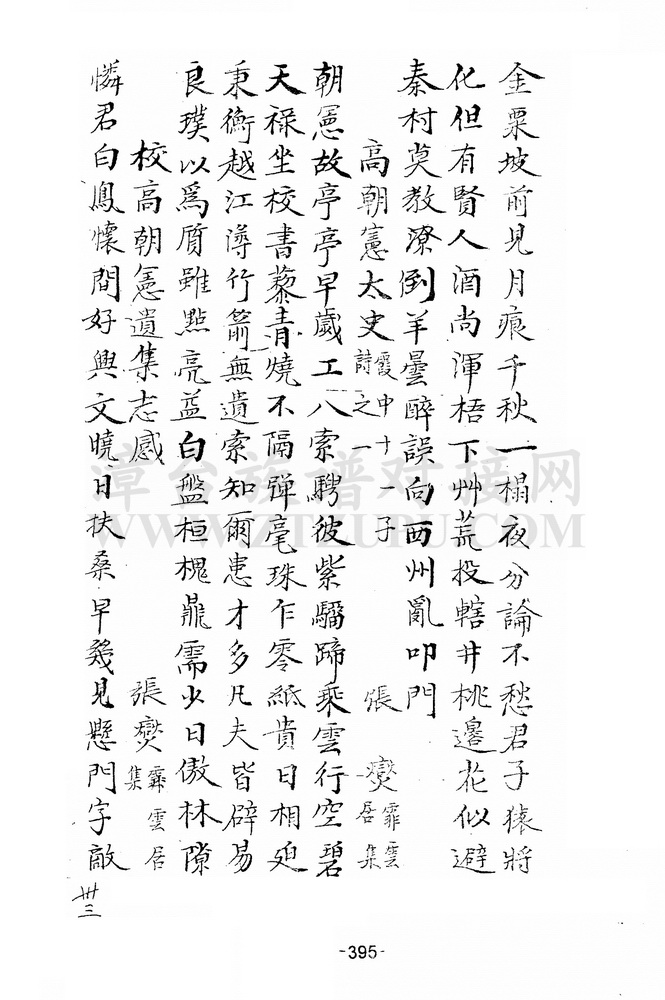 金粟坡前見月痕千秋一榻夜分論不愁君子猿將
化但有賢人酒尚渾梧下艸荒投轄井桃邊花似避
秦村莫教潦倒羊曇醉誤向西州亂叩門
高朝憲太史霞中十一子詩之一 張燮霏雲居集
朝憲故亭亭早歲工八索騁彼紫騮蹄乘雲行空碧
天祿坐校書藜青燒不隔彈毫珠乍零紙貴日相迫
秉衡越江濤竹箭無遺索知爾患才多凡夫皆辟易
良璞以為質雖點亮益白盤桓槐鼎需少日傲林隙
校高朝憲遺集志感 張燮霏雲居集
憐君白鳳懷間好與文曉日扶桑早幾見懸門字敵
卅三
-395-
漳台族谱对接网
WWW.ZTZUPU.COM